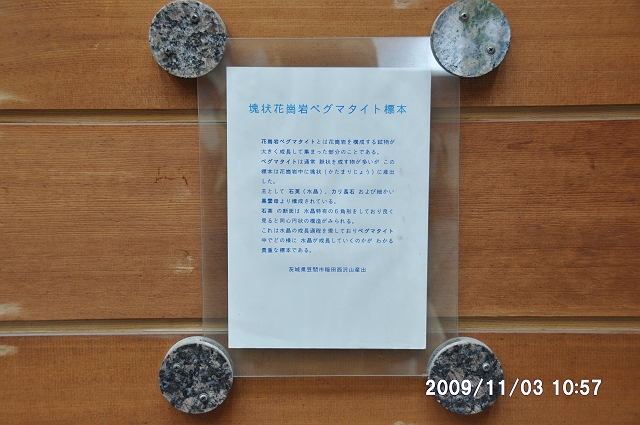 塊状花崗岩ペグマタイト標本
花崗岩ペグマタイトとは花崗岩を構成する鉱物が
大きく成長して集まった部分のことである。
ペグマタイトは通常 脈状を成す物が多いが この
標本は花崗岩中に塊状(かたまりじょう)に産出
した。
主として 石英(水晶)、カリ長石 および細かい
黒雲母より構成されている。
石英 の断面は 水晶特有の6角形をしており良く
見ると同心円状の構造がみられる。
これは水晶の成長過程を現しておりペグマタイト
中でどの様に 水晶が成長していくのかが わかる
貴重な標本である。
茨城県笠間市稲田西沢山産出
2009/11/03 10:57